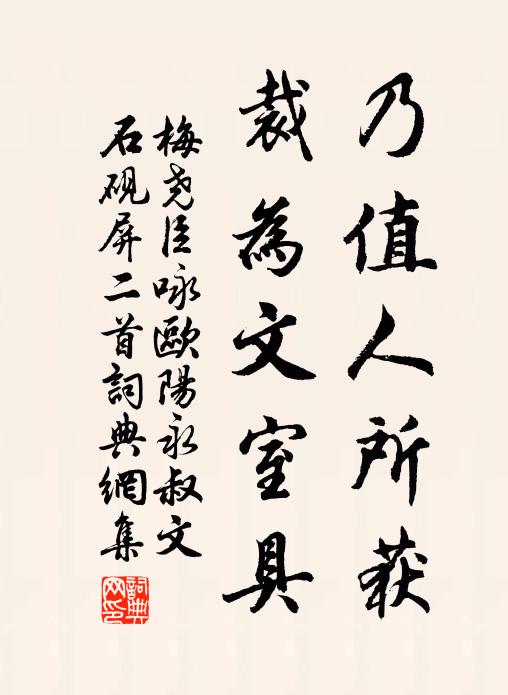 乃值人所获
裁為文室具
梅尧臣咏歐陽永叔文
石硯屏二首詞典網集
詞典網印